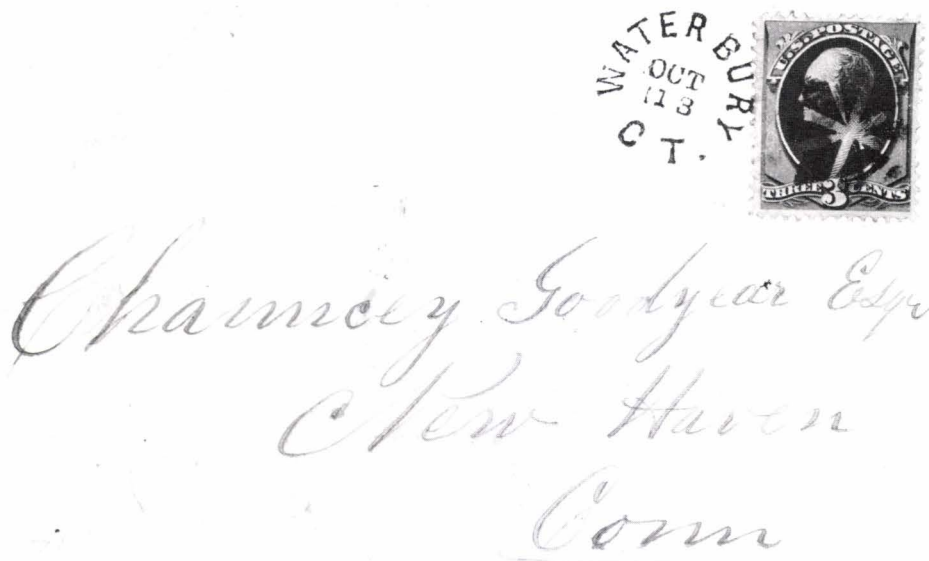 WATERBURY
OCT
13
CT.
U.S. POSTAGE
THREE 3 CENTS
Chauncey Goodyear Esqr
New Haven
Conn